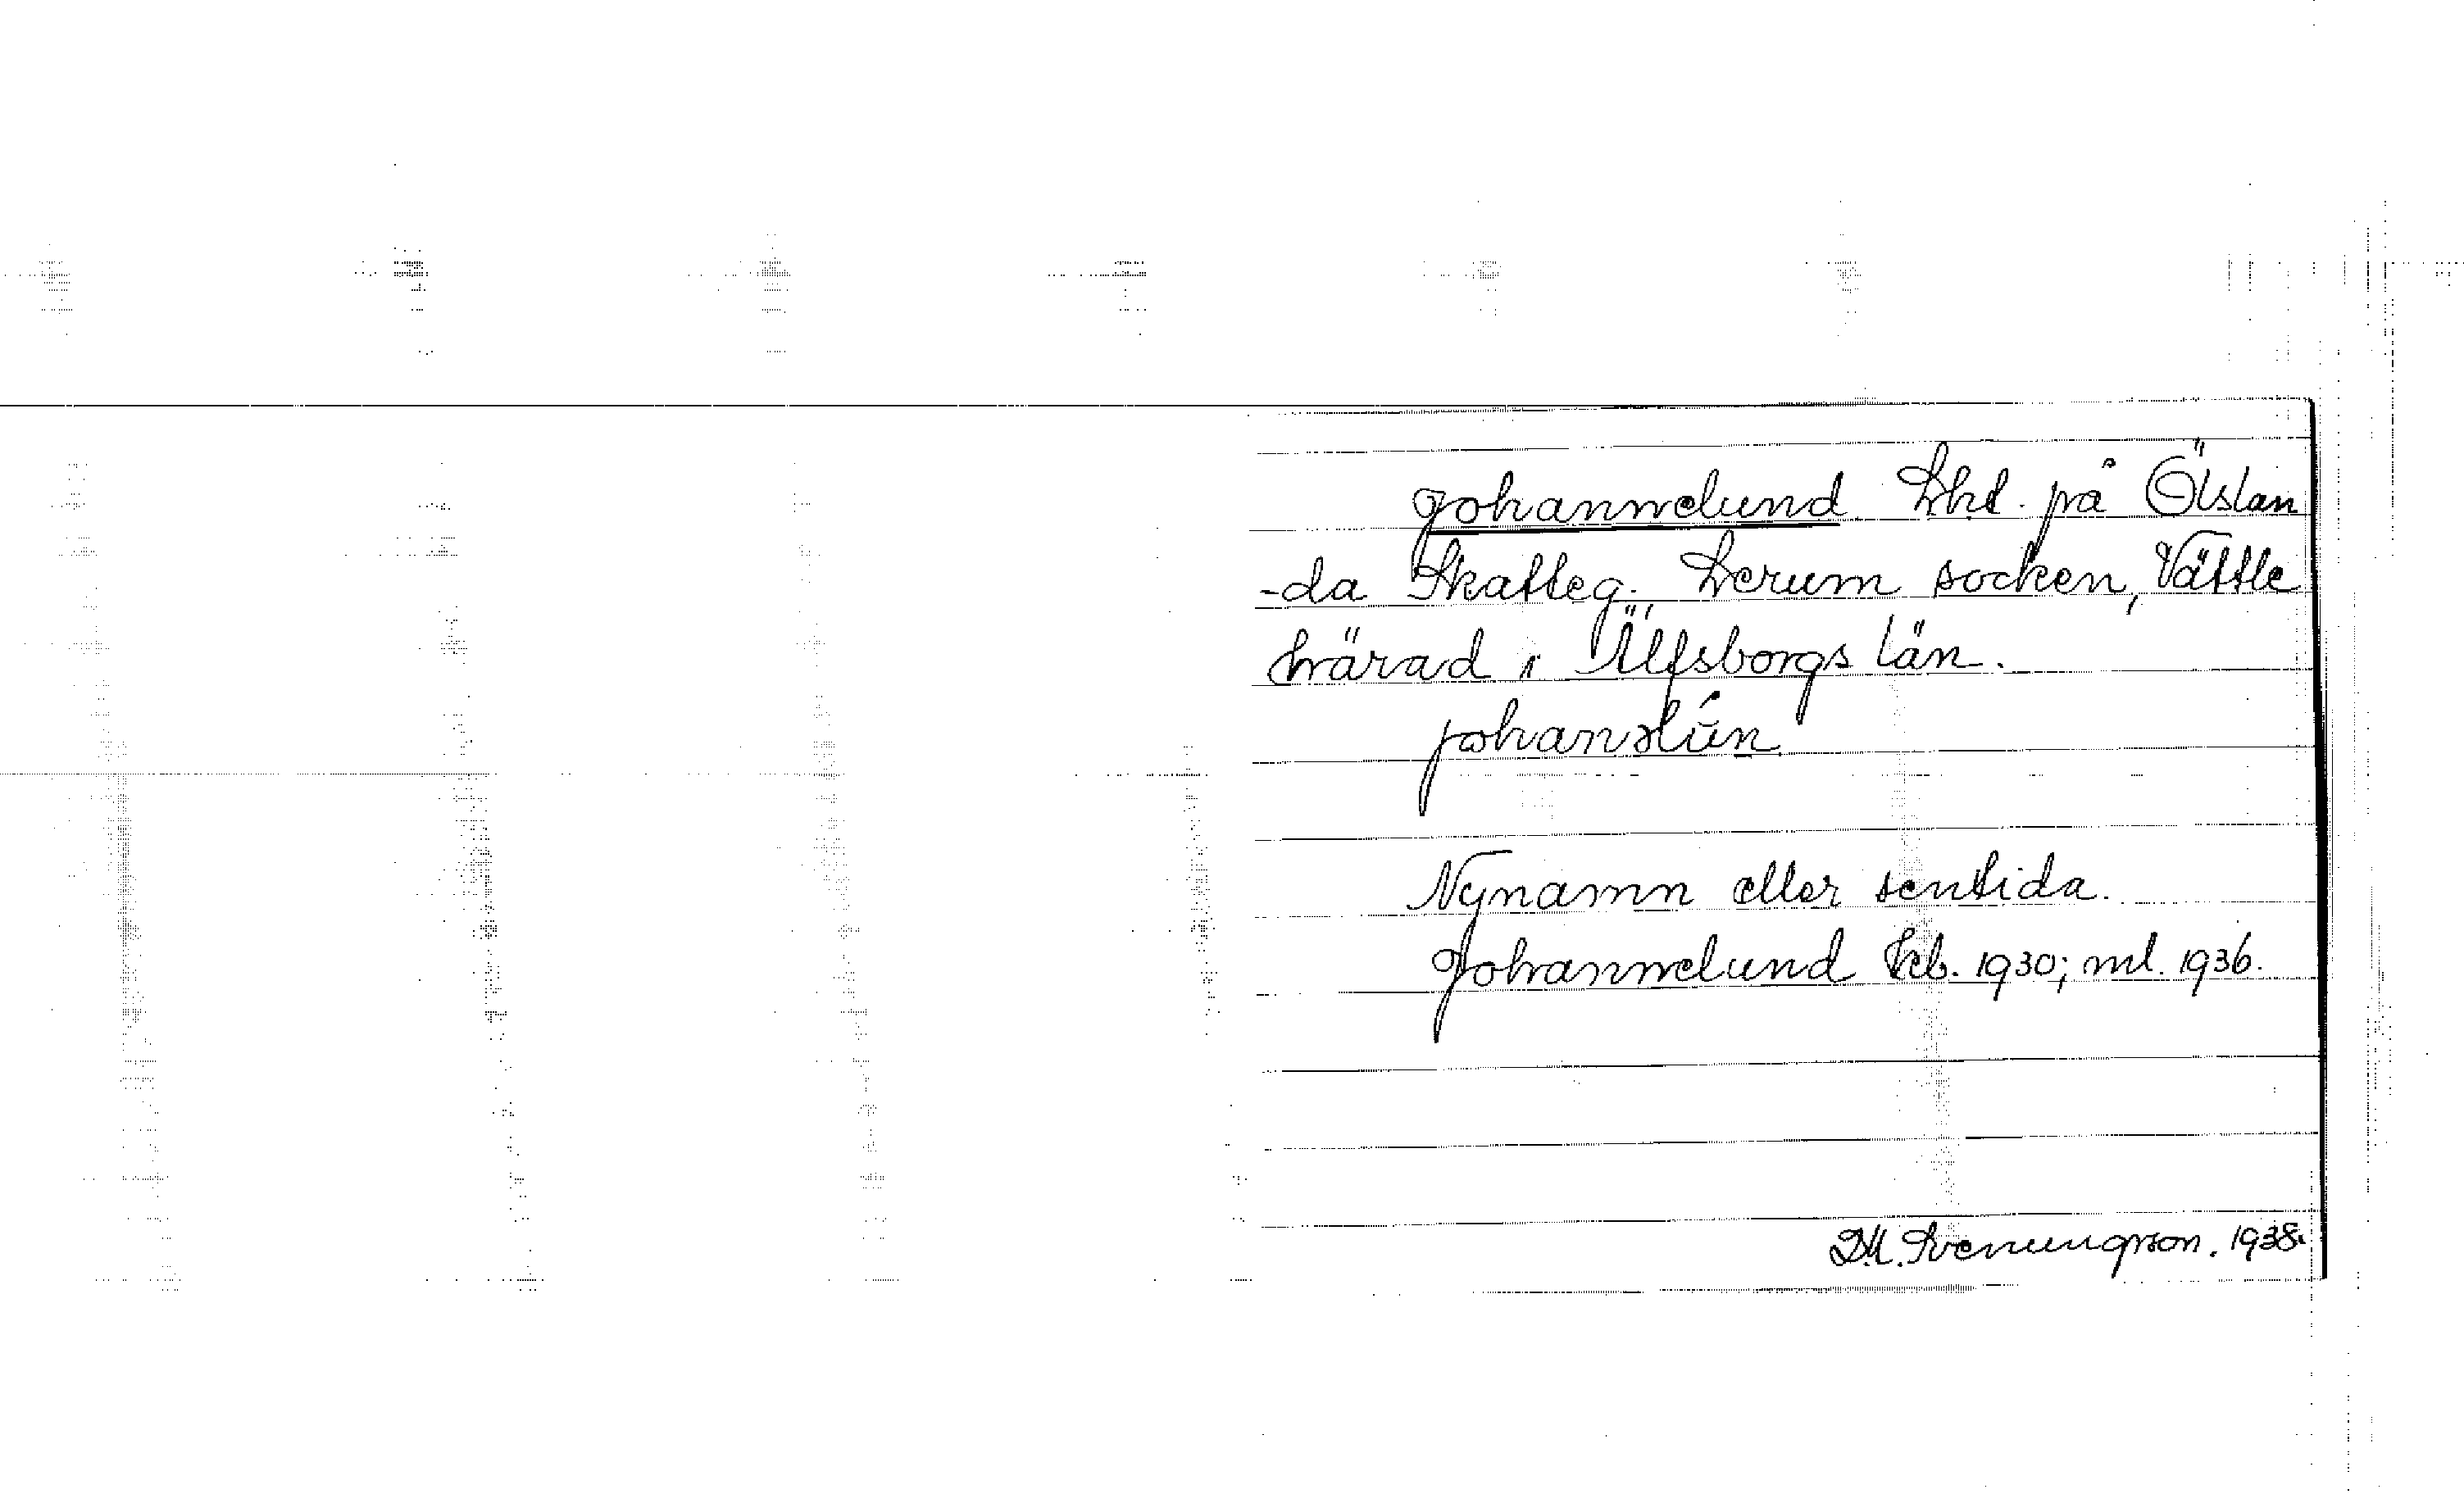 Johannelund Lht. på Ölslan
-da Skatteg. Lerum socken, Vättle
härad i Älfsborgs län.
Nynamn eller sentida.
Johannelund kb. 1930; ml. 1936.
D.M. Svenungson. 1938.